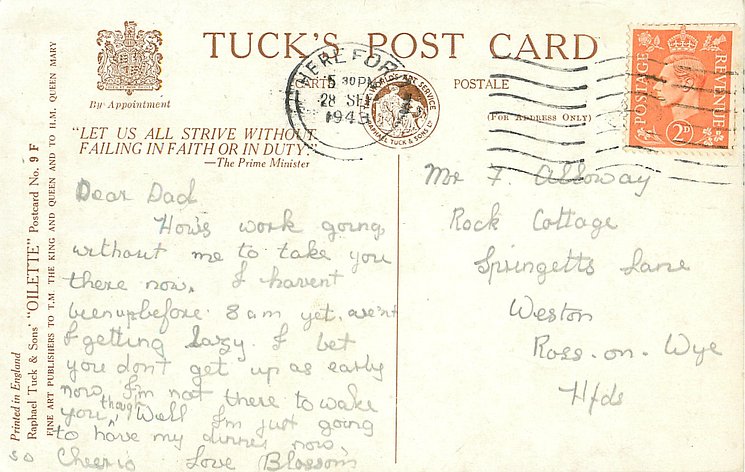 TUCK'S POST CARD
CARTE POSTALE
(FOR ADDRESS ONLY)
By Appointment
HEREFOR
5 30 PM
28 SEP
1943
RAPHAEL TUCK & SONS LTD
POSTAGE REVENUE
2D
"LET US ALL STRIVE WITHOUT
FAILING IN FAITH OR IN DUTY"
—The Prime Minister
Printed in England
Raphael Tuck & Sons' "OILETTE" Postcard No. 9 F
FINE ART PUBLISHERS TO T.M THE KING AND QUEEN AND TO H.M. QUEEN MARY
Dear Dad
How's work going
without me to take you
there now. I havent
been up before 8 am yet, aren't
I getting lazy. I bet
you don't get up as early
now I'm not there to wake
you, though Well I'm just going
to have my dinner now,
so Cheerio Love Blossom
Mr F. Alloway
Rock Cottage
Springetts Lane
Weston
Ross-on-Wye
Hfds